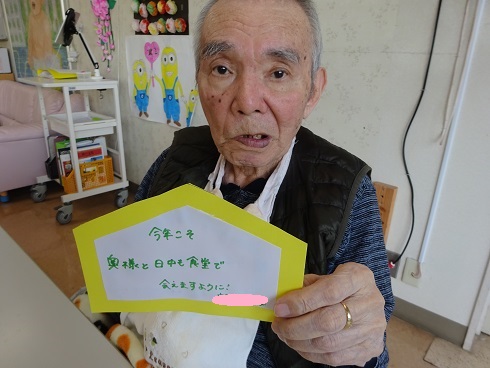 今年こそ
奥様と日中も食堂で
会えますように!